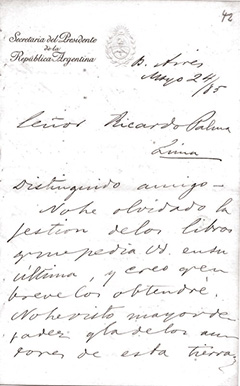 42
Secretaría del Presidente
de la
República Argentina
B. Aires
Mayo 24/85
Señor Ricardo Palma
Lima
Distinguido amigo—
No he olvidado la
gestion de los libros
que me pedia Ud. en su
última, y creo q' en
breve los obtendré.
No he visto mayor de
de los au
tores de esta tierra